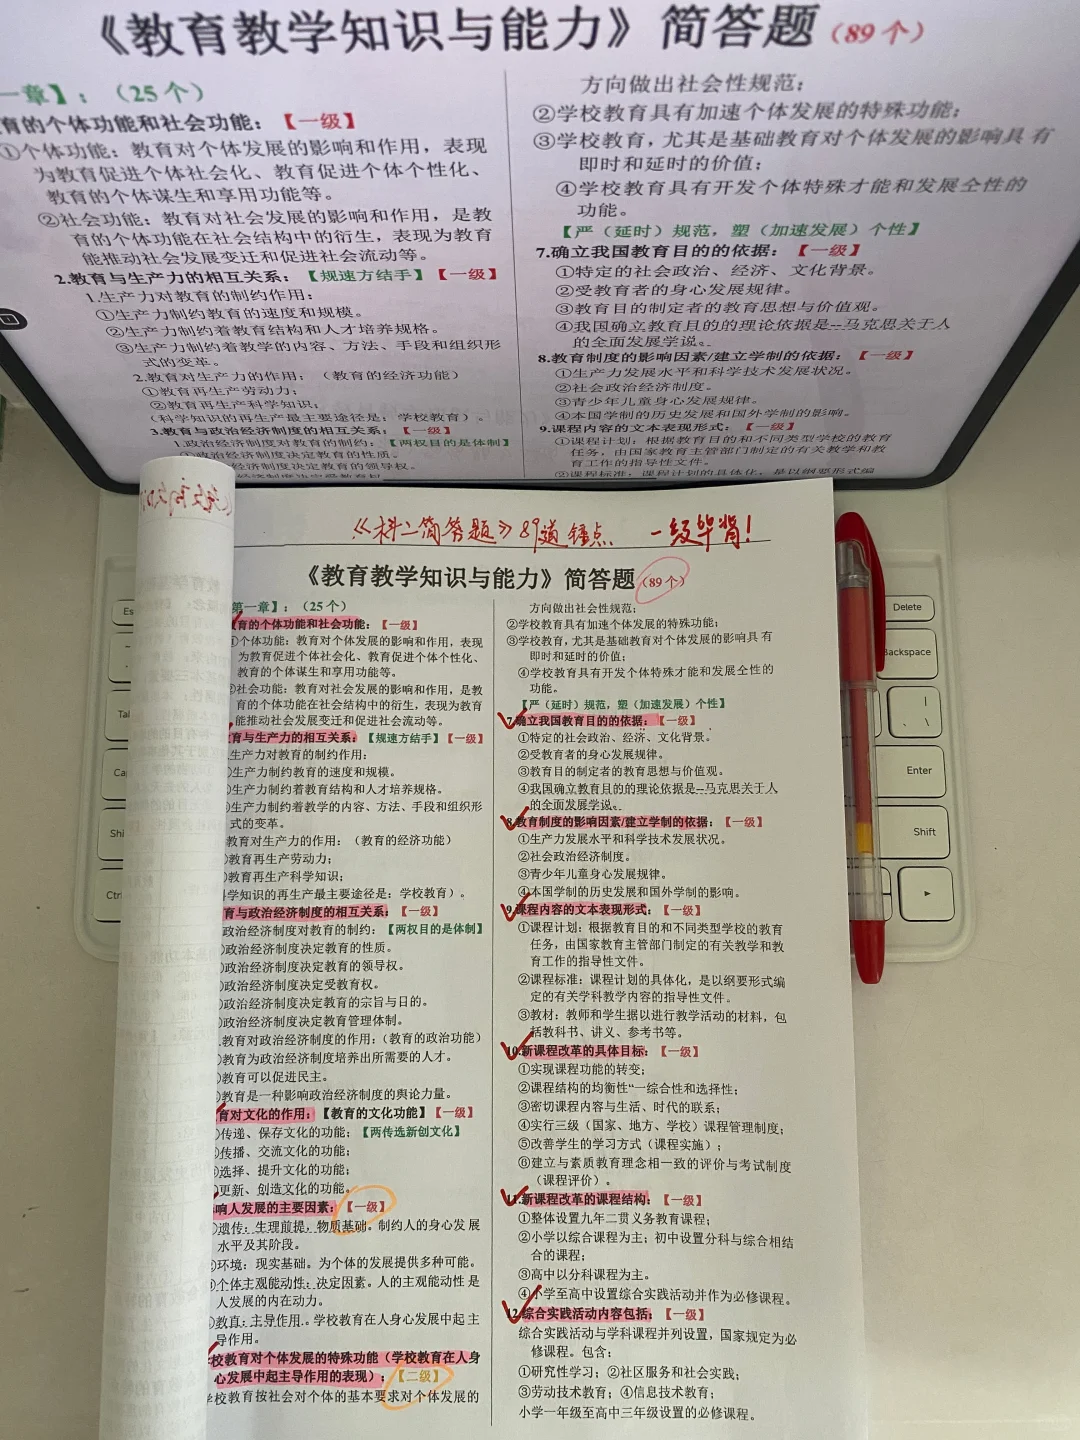 《教育教学知识与能力》简答题（89个）
一章】：（25个）
育的个体功能和社会功能：【一级】
①个体功能：教育对个体发展的影响和作用，表现
为教育促进个体社会化、教育促进个体个性化、
教育的个体谋生和享用功能等。
②社会功能：教育对社会发展的影响和作用，是教
育的个体功能在社会结构中的衍生，表现为教育
能推动社会发展变迁和促进社会流动等。
2.教育与生产力的相互关系：【规速方结手】【一级】
1.生产力对教育的制约作用：
①生产力制约教育的速度和规模。
②生产力制约着教育结构和人才培养规格。
③生产力制约着教学的内容、方法、手段和组织形
式的变革。
2.教育对生产力的作用：（教育的经济功能）
①教育再生产劳动力；
②教育再生产科学知识；
（科学知识的再生产最主要途径是：学校教育）。
3.教育与政治经济制度的相互关系：【一级】
1.政治经济制度对教育的制约：【两权目的是体制】
①政治经济制度决定教育的性质。
经济制度决定教育的领导权。
方向做出社会性规范；
②学校教育具有加速个体发展的特殊功能；
③学校教育，尤其是基础教育对个体发展的影响具有
即时和延时的价值；
④学校教育具有开发个体特殊才能和发展全性的
功能。
【严（延时）规范，塑（加速发展）个性】
7.确立我国教育目的的依据：【一级】
①特定的社会政治、经济、文化背景。
②受教育者的身心发展规律。
③教育目的制定者的教育思想与价值观。
④我国确立教育目的的理论依据是--马克思关于人
的全面发展学说。
8.教育制度的影响因素/建立学制的依据：【一级】
①生产力发展水平和科学技术发展状况。
②社会政治经济制度。
③青少年儿童身心发展规律。
④本国学制的历史发展和国外学制的影响。
9.课程内容的文本表现形式：【一级】
①课程计划：根据教育目的和不同类型学校的教育
任务，由国家教育主管部门制定的有关教学和教
育工作的指导性文件。
②课程标准：课程计划的具体化，是以纲要形式编
《科二简答题》89道 锤点 一级毕背！
《教育教学知识与能力》简答题（89个）
第一章】：（25个）
育的个体功能和社会功能：【一级】
①个体功能：教育对个体发展的影响和作用，表现
为教育促进个体社会化、教育促进个体个性化、
教育的个体谋生和享用功能等。
②社会功能：教育对社会发展的影响和作用，是教
育的个体功能在社会结构中的衍生，表现为教育
能推动社会发展变迁和促进社会流动等。
育与生产力的相互关系：【规速方结手】【一级】
生产力对教育的制约作用：
生产力制约教育的速度和规模。
生产力制约着教育结构和人才培养规格。
生产力制约着教学的内容、方法、手段和组织形
式的变革。
教育对生产力的作用：（教育的经济功能）
教育再生产劳动力；
教育再生产科学知识；
学知识的再生产最主要途径是：学校教育）。
育与政治经济制度的相互关系：【一级】
政治经济制度对教育的制约：【两权目的是体制】
政治经济制度决定教育的性质。
政治经济制度决定教育的领导权。
政治经济制度决定受教育权。
政治经济制度决定教育的宗旨与目的。
政治经济制度决定教育管理体制。
教育对政治经济制度的作用：（教育的政治功能）
教育为政治经济制度培养出所需要的人才。
教育可以促进民主。
教育是一种影响政治经济制度的舆论力量。
育对文化的作用：【教育的文化功能】【一级】
传递、保存文化的功能；【两传选新创文化】
传播、交流文化的功能；
选择、提升文化的功能；
更新、创造文化的功能。
响人发展的主要因素：【一级】
遗传：生理前提，物质基础。制约人的身心发展
水平及其阶段。
环境：现实基础。为个体的发展提供多种可能。
个体主观能动性：决定因素。人的主观能动性是
人发展的内在动力。
教育：主导作用。学校教育在人身心发展中起主
导作用。
校教育对个体发展的特殊功能（学校教育在人身
心发展中起主导作用的表现）：【二级】
学校教育按社会对个体的基本要求对个体发展的
方向做出社会性规范；
②学校教育具有加速个体发展的特殊功能；
③学校教育，尤其是基础教育对个体发展的影响具有
即时和延时的价值；
④学校教育具有开发个体特殊才能和发展全性的
功能。
【严（延时）规范，塑（加速发展）个性】
7.确立我国教育目的的依据：【一级】
①特定的社会政治、经济、文化背景。
②受教育者的身心发展规律。
③教育目的制定者的教育思想与价值观。
④我国确立教育目的的理论依据是--马克思关于人
的全面发展学说。
8.教育制度的影响因素/建立学制的依据：【一级】
①生产力发展水平和科学技术发展状况。
②社会政治经济制度。
③青少年儿童身心发展规律。
④本国学制的历史发展和国外学制的影响。
9.课程内容的文本表现形式：【一级】
①课程计划：根据教育目的和不同类型学校的教育
任务，由国家教育主管部门制定的有关教学和教
育工作的指导性文件。
②课程标准：课程计划的具体化，是以纲要形式编
定的有关学科教学内容的指导性文件。
③教材：教师和学生据以进行教学活动的材料，包
括教科书、讲义、参考书等。
10.新课程改革的具体目标：【一级】
①实现课程功能的转变；
②课程结构的均衡性“一综合性和选择性；
③密切课程内容与生活、时代的联系；
④实行三级（国家、地方、学校）课程管理制度；
⑤改善学生的学习方式（课程实施）；
⑥建立与素质教育理念相一致的评价与考试制度
（课程评价）。
11.新课程改革的课程结构：【一级】
①整体设置九年二贯义务教育课程；
②小学以综合课程为主；初中设置分科与综合相结
合的课程；
③高中以分科课程为主。
④小学至高中设置综合实践活动并作为必修课程。
12.综合实践活动内容包括：【一级】
综合实践活动与学科课程并列设置，国家规定为必
修课程。包含：
①研究性学习；②社区服务和社会实践；
③劳动技术教育；④信息技术教育；
小学一年级至高中三年级设置的必修课程。
Es
Tal
Ca
Shi
Ctr
Delete
Backspace
| \
Enter
Shift